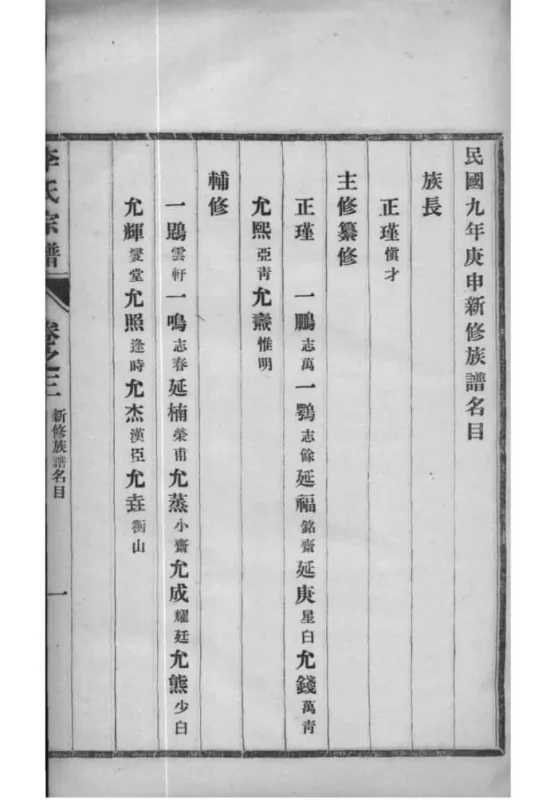 民國九年庚申新修族譜名目
族長
正瑾愼才
主修纂修
正瑾 一鵬志萬一鶚志餘延福銘齋延庚星白允錢萬青
允熙亞青允燾惟明
輔修
一鵾雲軒一鳴志春延楠榮甫允蒸小齋允成耀廷允熊少白
允輝燮堂允照逢時允杰漢臣允垚衡山
李氏宗譜 卷之三 新修族譜名目 一